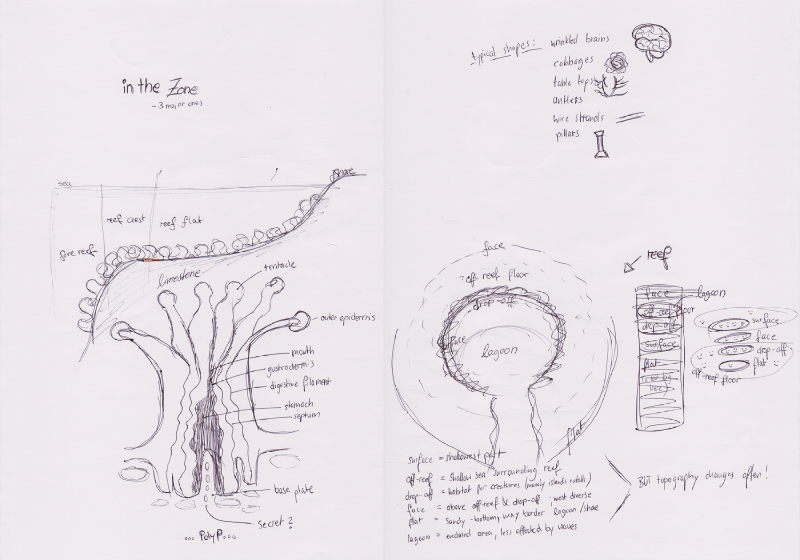 in the Zone
- 3 major ones
sea
shore
reef crest
reef flat
fore reef
limestone
tentacle
outer epidermis
mouth
gastrodermis
digestive filament
stomach
septum
base plate
secret?
... Polyp...
typical shapes:
wrinkled brains
cabbages
table tops
antlers
wire strands
pillars
face
off-reef floor
drop-off
surface
lagoon
flat
reef
face
lagoon
off-reef floor
drop-off
surface
flat
surface
face
drop-off
flat
off-reef floor
surface = shallowest part
off-reef = shallow sea surrounding reef
drop-off = habitat for creatures
face = above off-reef & drop-off ; most diverse
flat = sandy-bottom, may border lagoon/shore
lagoon = enclosed area, less affected by waves
But topography changes often!